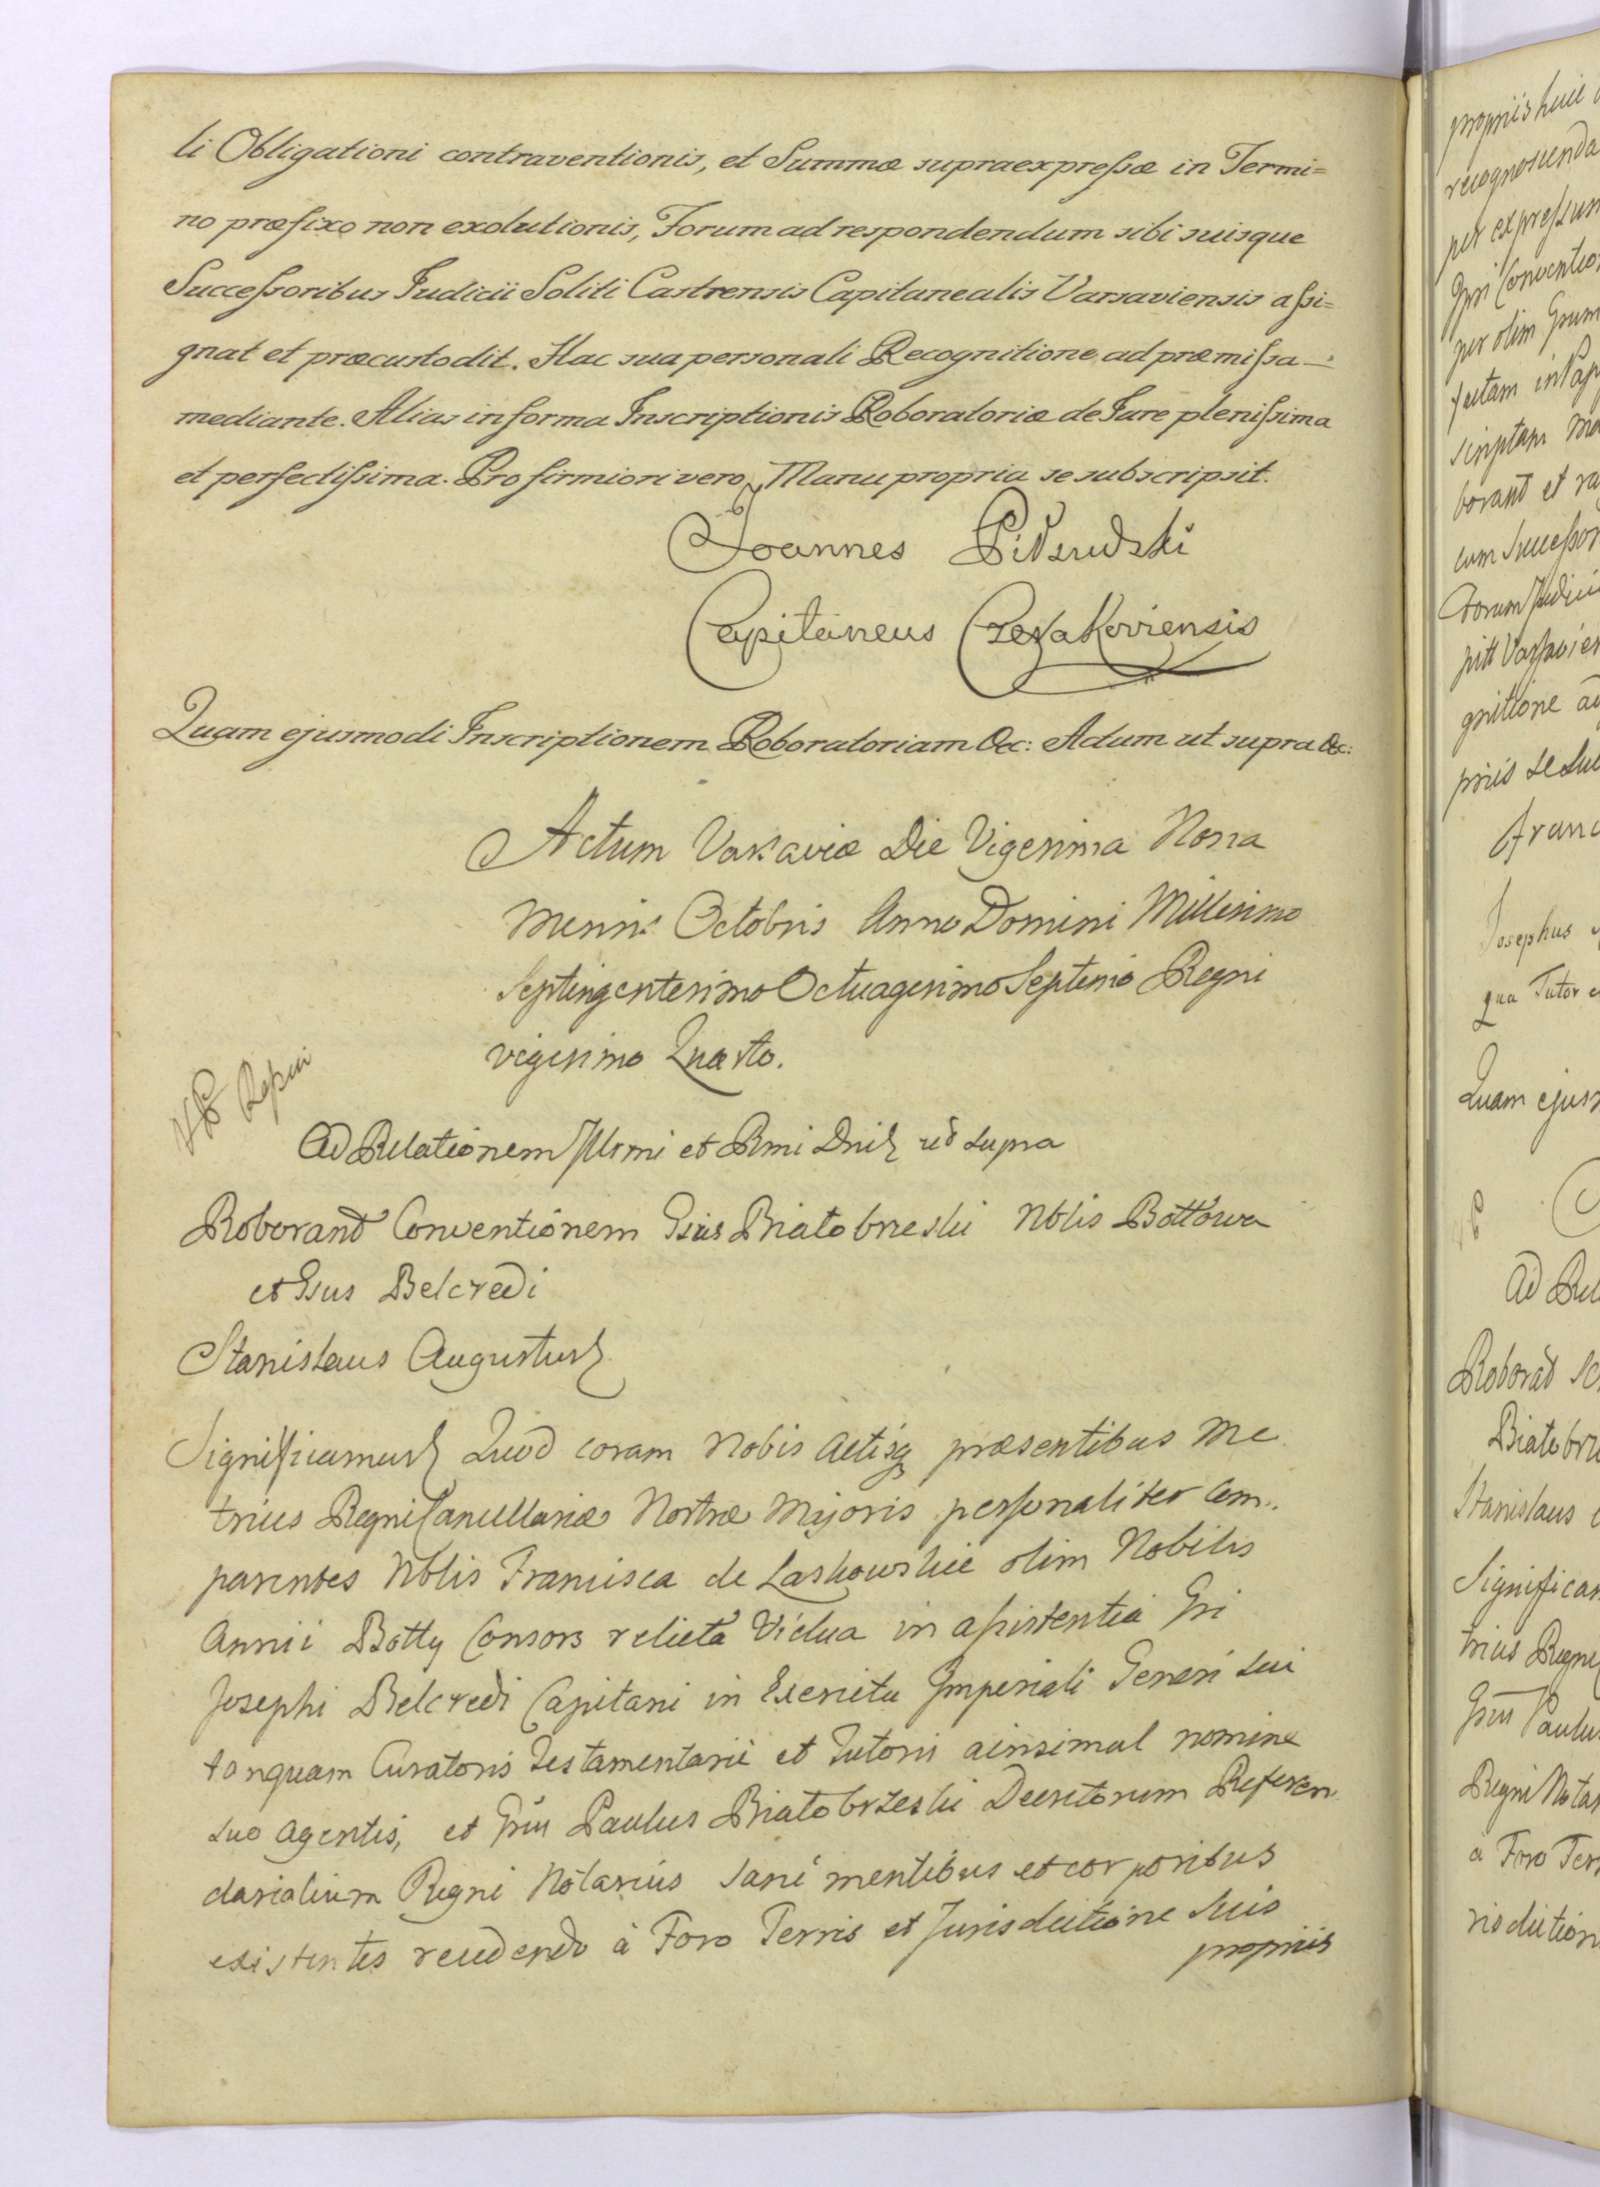 li Obligationi contraventionis, et Summæ supraexpressæ in Termi=
no præfixo non exolutionis, Forum ad respondendum sibi suisque
Successoribus Judicii Soliti Castrensis Capitanealis Varsaviensis assi=
gnat et præcustodit. Hac sua personali Recognitione ad præmissa
mediante. Alias in forma Inscriptionis Roboratoriæ de Jure plenissima
et perfectissima. Pro firmiori vero Manu propria se subscripsit.
Joannes Piłsudski
Capitaneus
Quam ejusmodi Inscriptionem Roboratoriam &c: Actum ut supra &c:
Actum Varsaviæ Die Vigesima Nona
Mensis Octobris Anno Domini Millesimo
Septingentesimo Octuagesimo Septimo Regni
vigesimo Quarto.
Ad Relationem Illrmi et Rmi Dni ut supra
Roborant Conventionem Gsus Białobrzeski Nblis Bottowa
et Gsus Belcredi
Stanislaus Augustus
Significamus Quod coram Nobis Actisq præsentibus Me
trices Regni Cancellariæ Nostræ Majoris personaliter Com
parentes Nblis Francisca de Laskowskie olim Nobilis
Botty Consors relicta Vidua in assistentia Gsi
Josephi Belcredi Capitani in Exercitu Imperiali Generi sui
tanquam Curatoris Testamentarii et Tutoris ainsimul nomine
suo agentis, et Gsus Paulus Białobrzeski Decretorum Referen
darialium Regni Notarius sani mentibus et corporibus
existentes recedendo à Foro Terris et Jurisdictione suis
propriis
propriis huic
recognoscenda
per expressum
Gsi
per olim Gsum
scriptam
borant et
cum Successor
Forum Judicii
gnitione ad
Franc
Josephus
qua Tutor
Quam ejusm
Ad Rel
Roborat
Białobrz
Stanislaus
Significam
trices Regni
Gsus Paulus
Regni Notar
a Foro Terr
risdiction